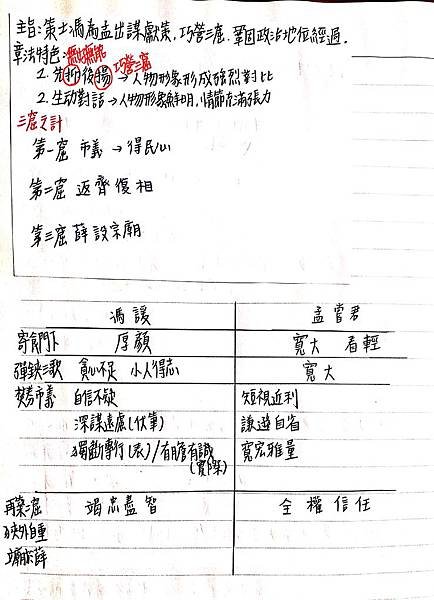 主旨:策士馮為孟出謀獻策,巧營三窟、鞏固政治地位經過.
章法特色:無好無能
1. 先抑後揚 巧營三窟 → 人物形象形成強烈對比
2. 生動對話 → 人物形象鮮明,情節充滿張力
三窟之計
第一窟 市義 → 得民心
第二窟 返齊復相
第三窟 薛設宗廟
馮諼 孟嘗君
寄食門下 厚顏 寬大 看輕
彈鋏三歌 貪心不足 小人得志 寬大
焚券市義 自信不疑 短視近利
深謀遠慮(伏筆) 謙遜自省
獨斷專行(表)/有膽有識 寬宏雅量
(實際)
再築二窟 竭忠盡智 全權信任
挾外自重
立廟於薛